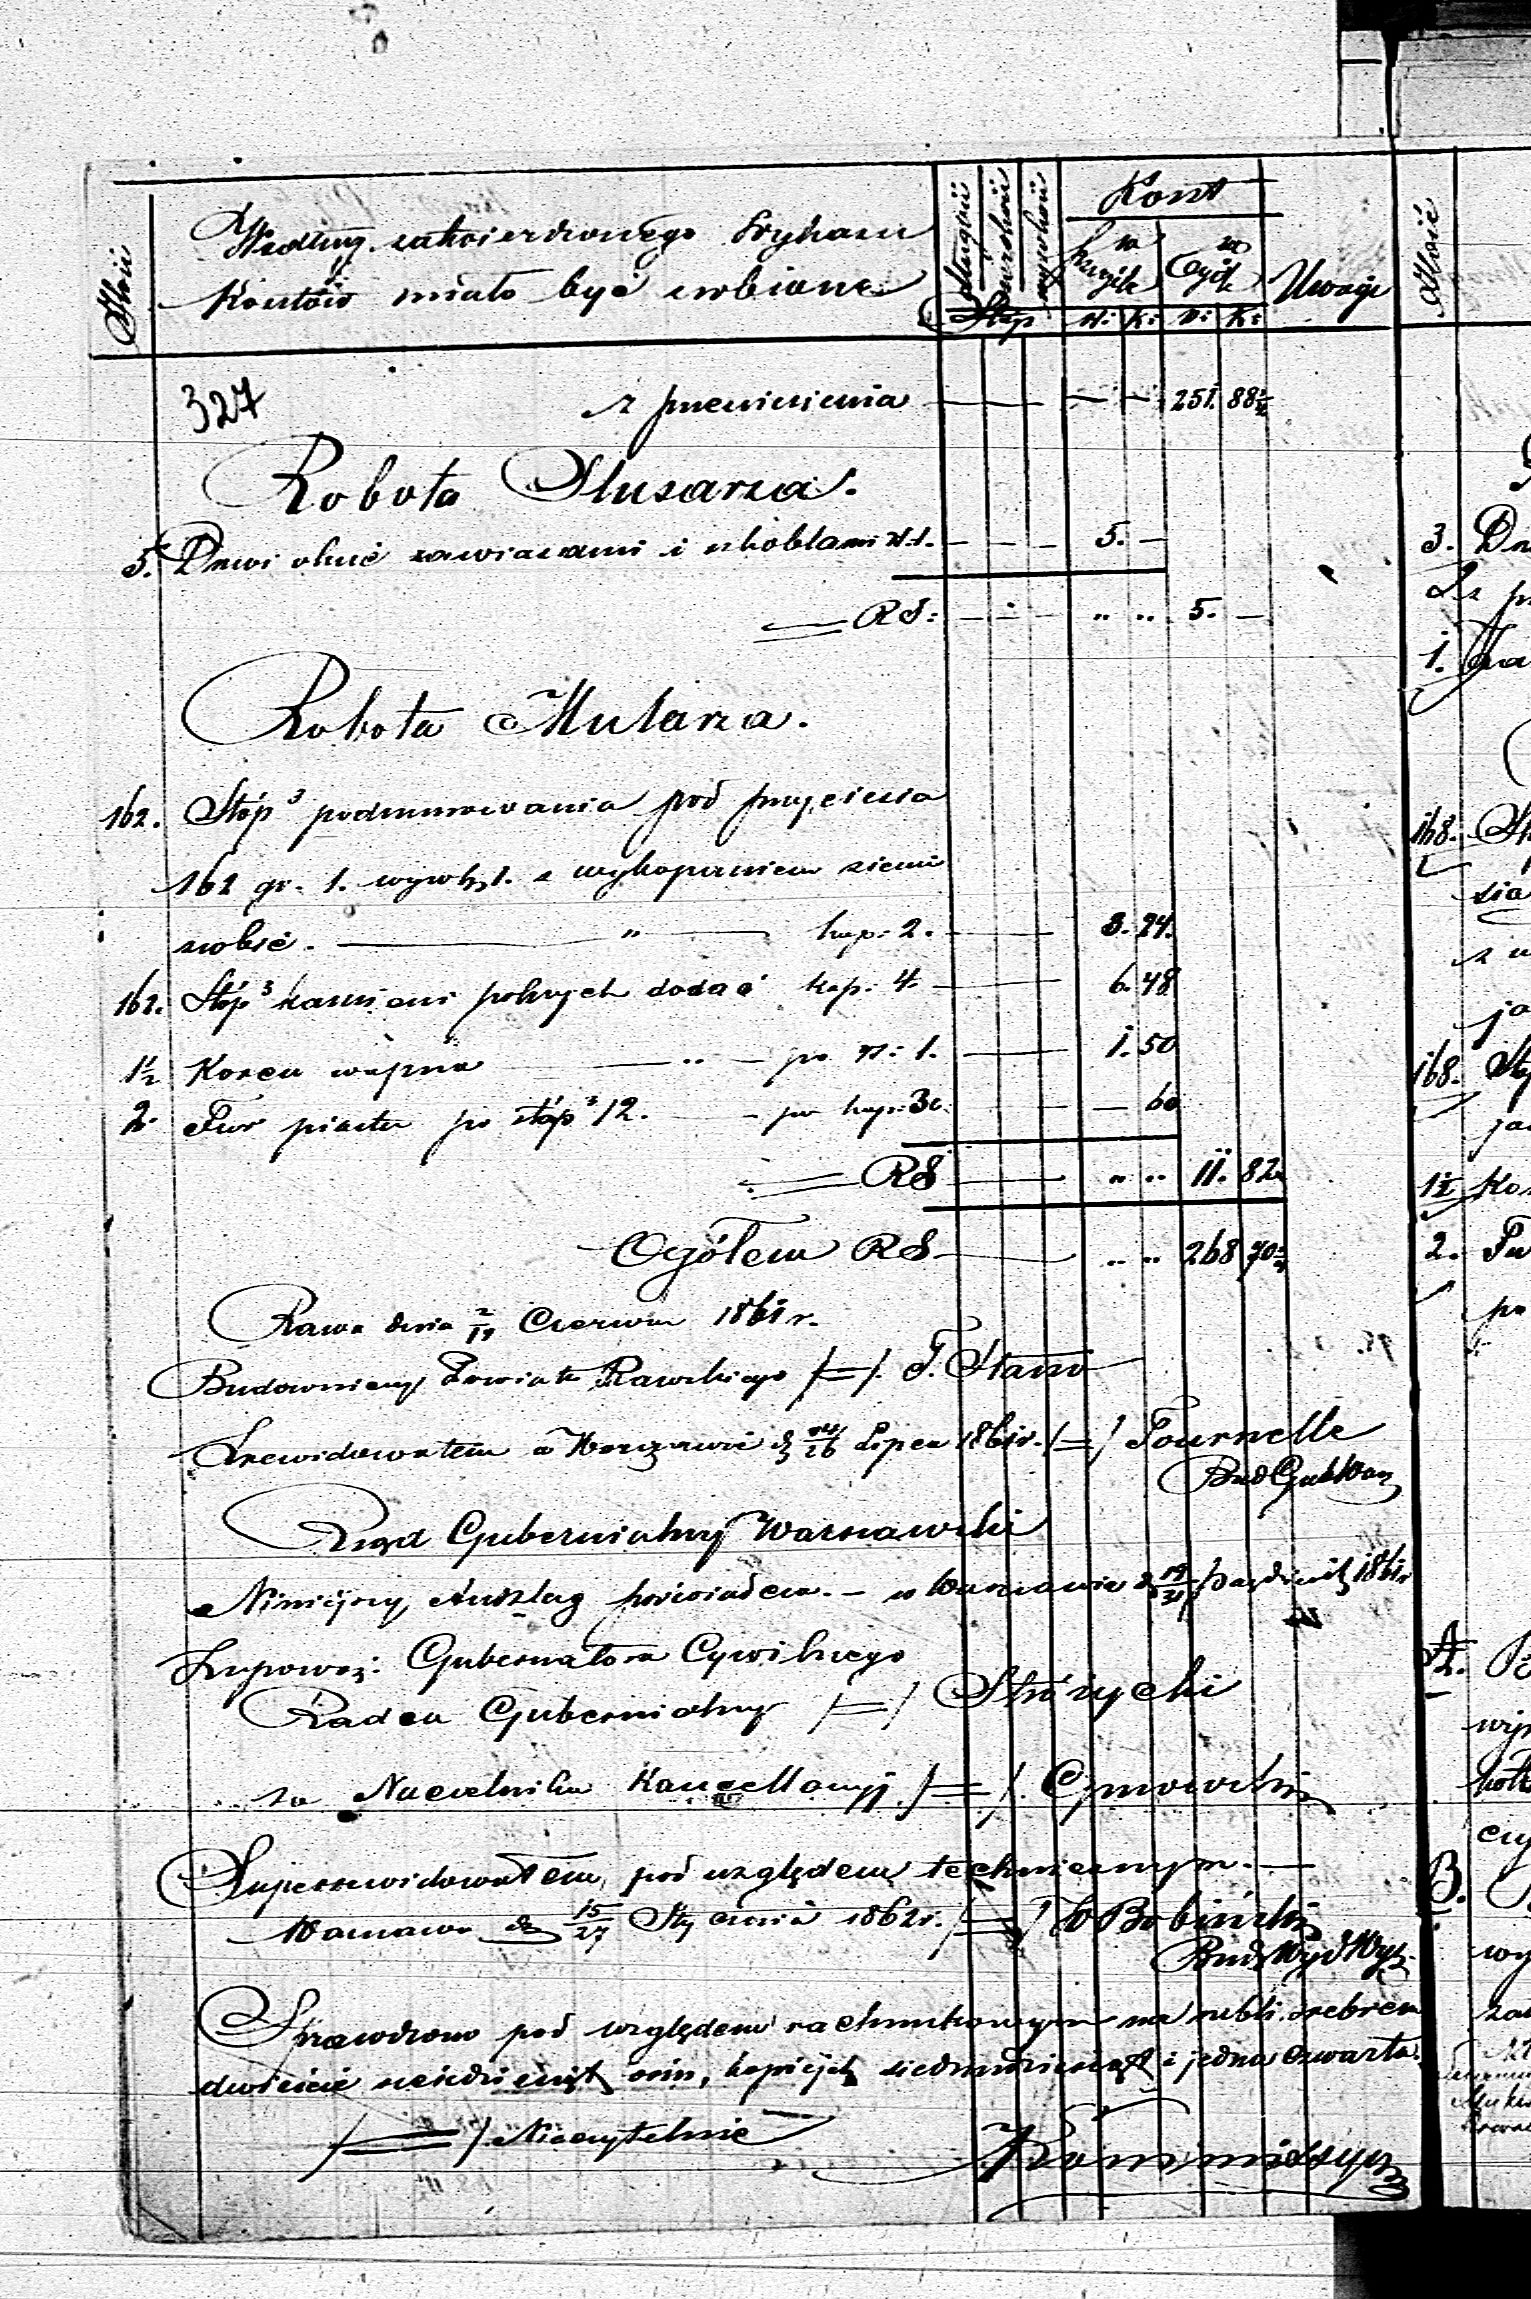 Ilość
Według zatwierdzonego Wykazu
Kosztów miało być zrobione
długość
szerokość
wysokość
Stóp
Koszt
za
szczegóły
za
Ogół
rs: k: rs: k:
Uwagi
Ilość
327
z przeniesienia — — — 251. 88
Robota Slusarza.
5. Drzwi okuć zawiasami i skoblami — — — 5. —
RS: — — — " " 5. —
Robota Mularza.
162. Stóp 3 podmurowania pod przyciesia
162 gr. 1. wysok. 1. z wykopaniem ziemi
zrobić. — " — kop: 2. — 3. 24.
162. Stóp 3 kamieni polnych dodać kop: 4. — 6. 48
1½ Korca wapna — " — po rs: 1. — 1. 50
2. Fur piasku po stóp 3 12. — po kop: 30. — — 60
RS — " " 11. 82
Ogółem RS — " " 268 70
Rawa dnia Czerwca 1861 r.
Budowniczy Powiatu Rawskiego /=/.
Zrewidowałem w Warszawie d. /26 Lipca 1861 r. /=/ Tournelle
Bud Gub War
Rząd Gubernialny Warszawski
Niniejszy Anszlag poświadcza. — w Warszawie d. 19/31 Październik 1861 r
Zupoważ: Gubernatora Cywilnego
Radca Gubernialny /=/ Stróżycki
za Naczelnika Kancellaryj /=/.
Superrewidowałem pod względem technicznym. —
Warszawa d. 15/27 Stycznia 1862 r. /=/ Bobiński
Bud Wyd Wyz
Sprawdzono pod względem rachunkowym na rubli srebrem
dwieście sześćdziesiąt ośm, kopiejek siedmdziesiąt i jedna czwarta.
/=/ Nieczytelnie
3.
1.
168.
168.
1½
2.
po
A.
B.